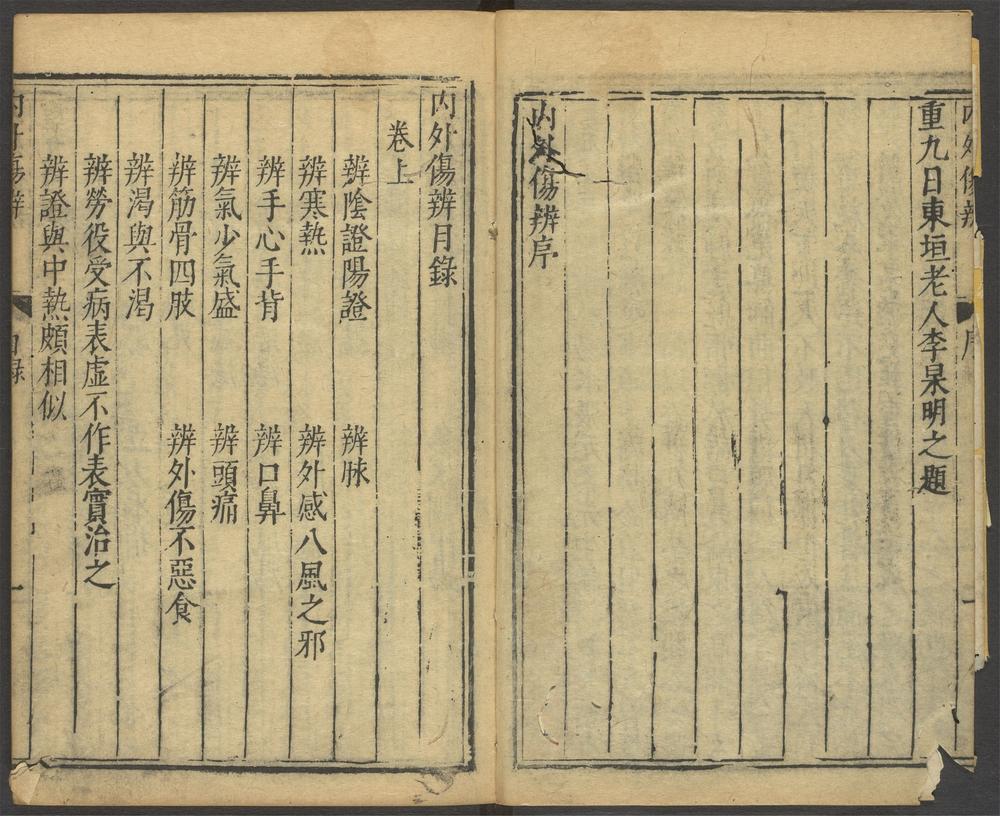 重九日東垣老人李杲明之題
內外傷辨序
內外傷辨目錄
卷上
辨陰證陽證 辨脉
辨寒熱 辨外感八風之邪
辨手心手背 辨口鼻
辨氣少氣盛 辨頭痛
辨筋骨四肢 辨外傷不惡食
辨渴與不渴
辨勞役受病表虛不作表實治之
辨證與中熱頗相似